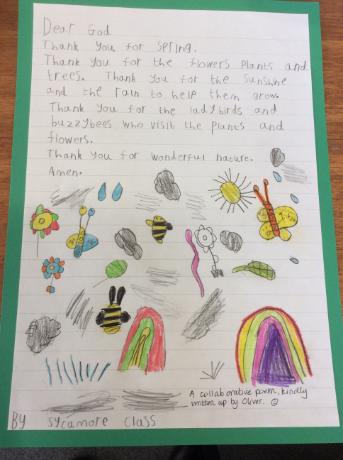 Dear God
Thank you for spring.
Thank you for the flowers plants and
trees. Thank you for the sunshine
and the rain to help them grow.
Thank you for the ladybirds and
buzzybees who visit the plants and
flowers.
Thank you for wonderful nature.
Amen.
A collaborative poem, kindly
written up by Oliver. ☺
By Sycamore Class